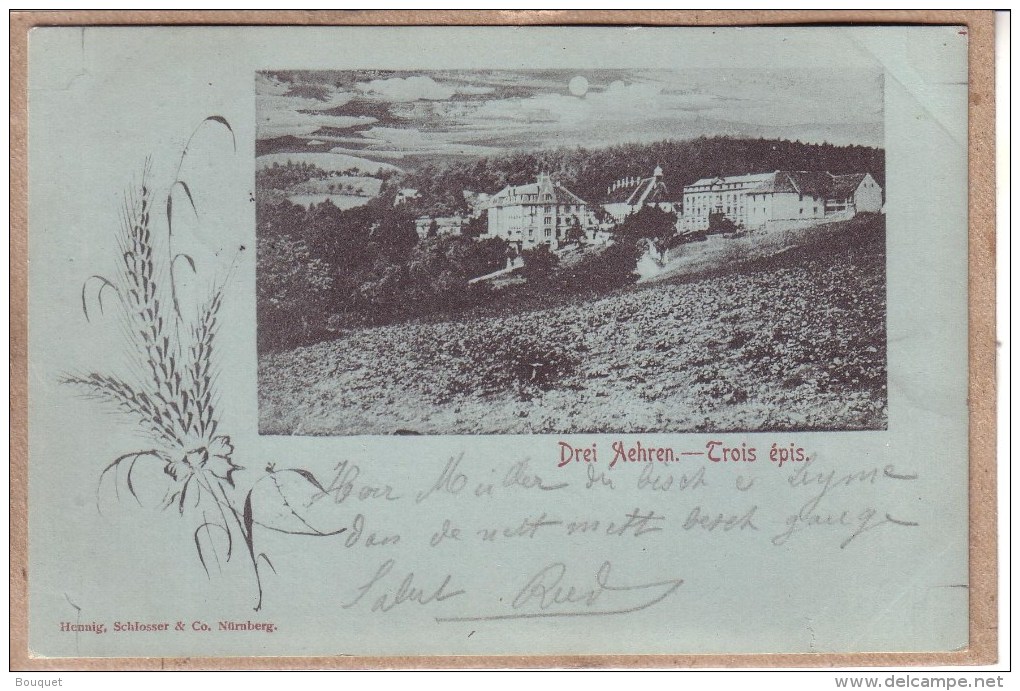 Drei Aehren.—Trois épis.
Her Müller du bisch e
dass de nett mett besch gange
Salut Ried
Hennig, Schlosser & Co. Nürnberg.
Bouquet
www.delcampe.net